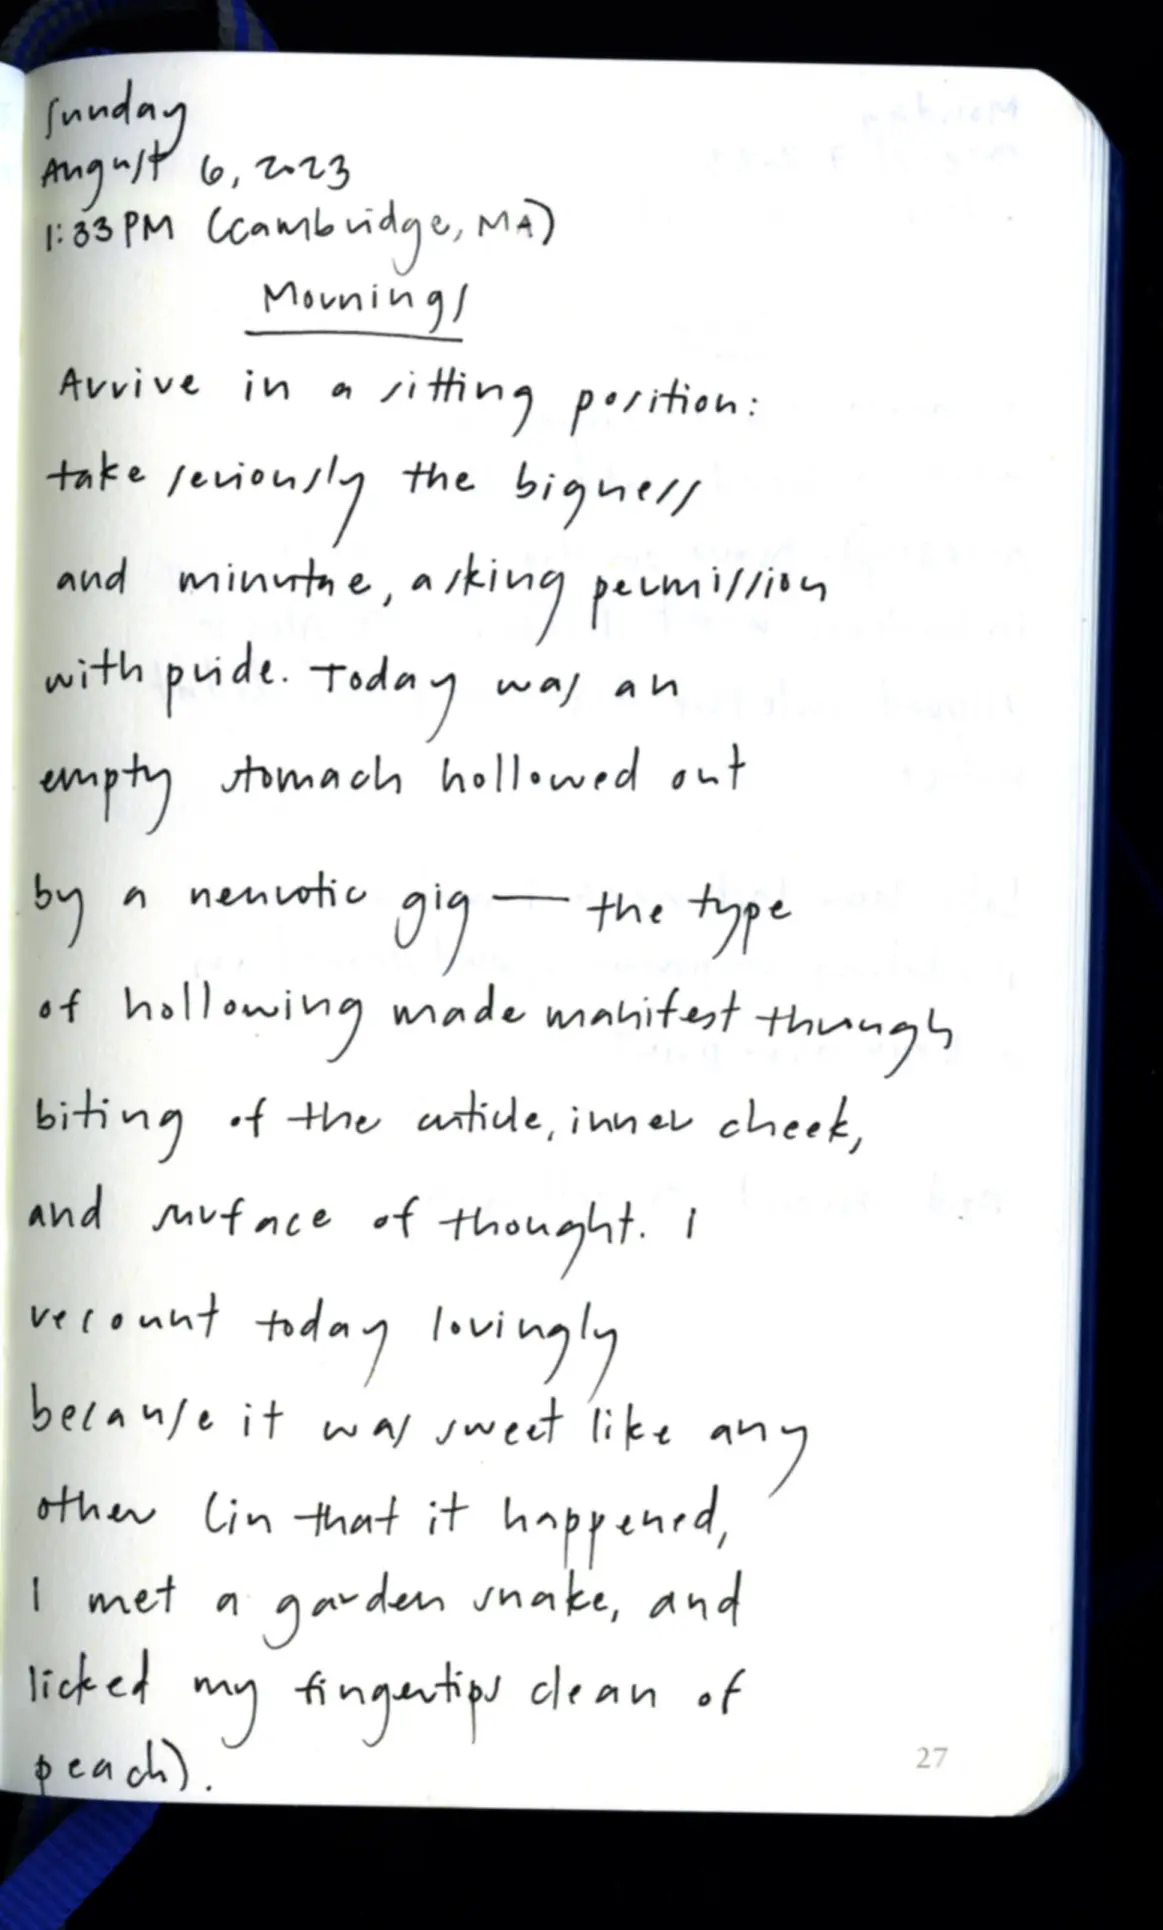 Sunday
August 6, 2023
1:33 PM (Cambridge, MA)
Mornings
Arrive in a sitting position:
take seriously the bigness
and minutae, asking permission
with pride. Today was an
empty stomach hollowed out
by a neurotic gig — the type
of hollowing made manifest through
biting of the cuticle, inner cheek,
and surface of thought. I
recount today lovingly
because it was sweet like any
other (in that it happened,
I met a garden snake, and
licked my fingertips clean of
peach).
27